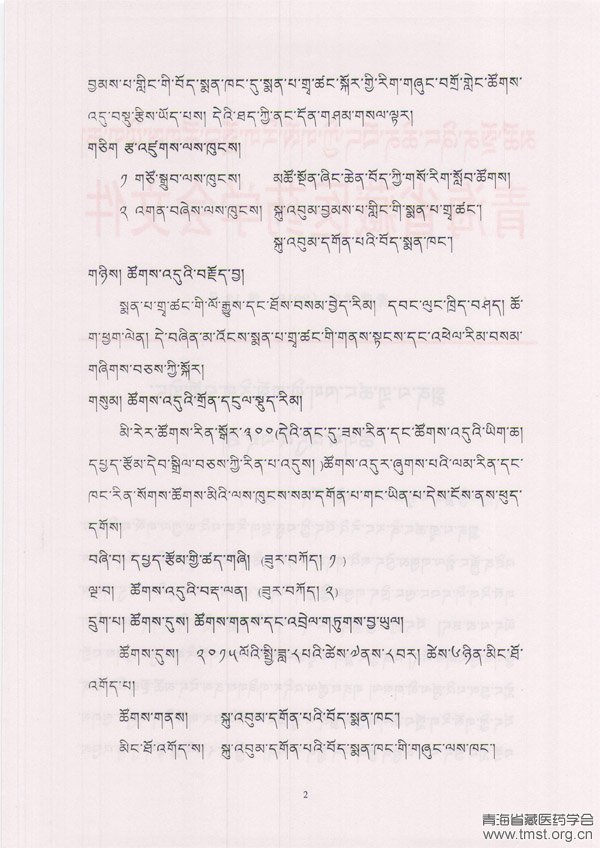 བྱམས་པ་གླིང་གི་བོད་སྨན་ཁང་དུ་སྨན་པ་གྲྭ་ཚང་སྐོར་གྱི་རིག་གཞུང་བགྲོ་གླེང་ཚོགས་
འདུ་བསྡུ་རྩིས་ཡོད་པས། དེའི་ཐད་ཀྱི་ནང་དོན་གཤམ་གསལ་ལྟར།
གཅིག རྩ་འཛུགས་ལས་ཁུངས།
༡ གཙོ་སྒྲུབ་ལས་ཁུངས། མཚོ་སྔོན་ཞིང་ཆེན་བོད་ཀྱི་གསོ་རིག་སློབ་ཚོགས།
༢ འགན་བཞེས་ལས་ཁུངས། སྐུ་འབུམ་བྱམས་པ་གླིང་གི་སྨན་པ་གྲྭ་ཚང་།
སྐུ་འབུམ་དགོན་པའི་བོད་སྨན་ཁང་།
གཉིས། ཚོགས་འདུའི་བརྗོད་བྱ།
སྨན་པ་གྲྭ་ཚང་གི་ལོ་རྒྱུས་དང་ཐོས་བསམ་བྱེད་རིམ། དབང་ལུང་ཁྲིད་བཤད། ཆོ་
ག་ཕྱག་ལེན། དེ་བཞིན་མ་འོངས་སྨན་པ་གྲྭ་ཚང་གི་གནས་སྟངས་དང་འཕེལ་རིམ་བསམ་
གཞིགས་བཅས་ཀྱི་སྐོར།
གསུམ། ཚོགས་འདུའི་གྲོན་དངུལ་སྡུད་རིམ།
མི་རེར་ཚོགས་རིན་སྒོར་༣༠༠(དེའི་ནང་དུ་ཟས་རིན་དང་ཚོགས་འདུའི་ཡིག་ཆ།
དཔྱད་རྩོམ་དེབ་སྒྲིལ་བཅས་ཀྱི་རིན་པ་འདུས། )ཚོགས་འདུར་ཞུགས་པའི་ལམ་རིན་དང་
ཁང་རིན་སོགས་ཚོགས་མིའི་ལས་ཁུངས་སམ་དགོན་པ་གང་ཡིན་པ་དེས་ངོས་ནས་ཕུད་
དགོས།
བཞི་བ། དཔྱད་རྩོམ་གྱི་ཚད་གཞི། (ཟུར་བཀོད། ༡ )
ལྔ་བ། ཚོགས་འདུའི་བརྡ་ལན། (ཟུར་བཀོད། ༢)
དྲུག་པ། ཚོགས་དུས། ཚོགས་གནས་དང་འབྲེལ་གཏུགས་བྱ་ཡུལ།
ཚོགས་དུས། ༢༠༡༥ལོའི་སྤྱི་ཟླ་༨པའི་ཚེས་༧ནས་༨བར། ཚེས་༦ཉིན་མིང་ཐོ་
འགོད་པ།
ཚོགས་གནས། སྐུ་འབུམ་དགོན་པའི་བོད་སྨན་ཁང་།
མིང་ཐོ་འགོད་ས། སྐུ་འབུམ་དགོན་པའི་བོད་སྨན་ཁང་གི་གཞུང་ལས་ཁང་།
2
青海省藏医药学会
www.tmst.org.cn